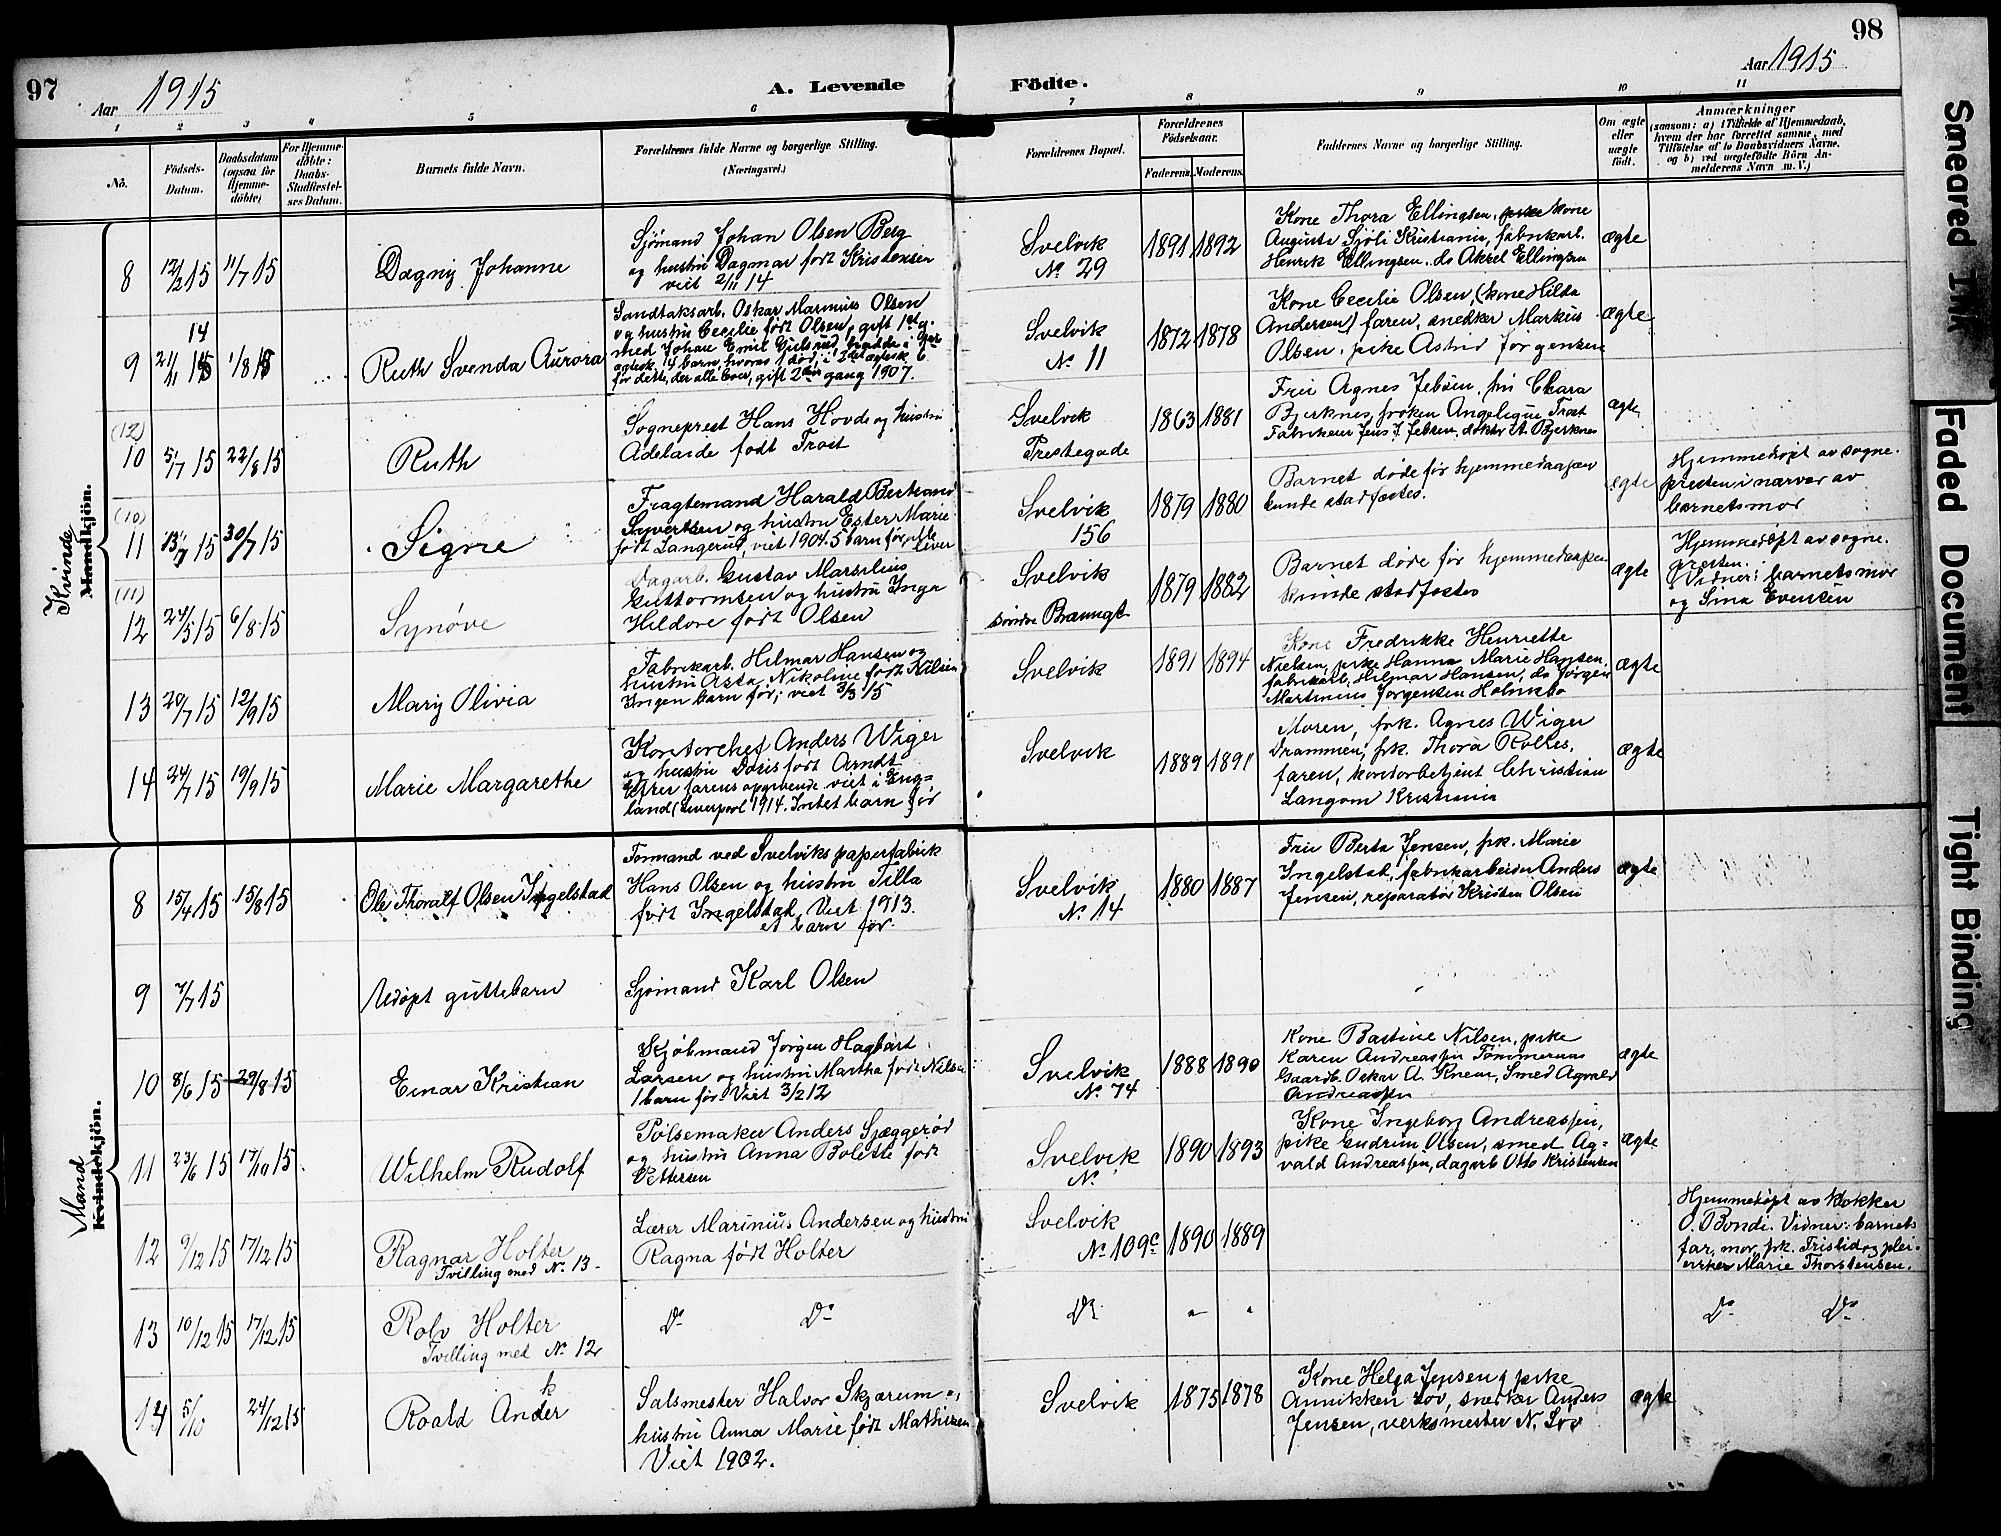 97
Aar 1915
A. Levende
Födte.
98
Aar 1915
1 2 3 4 5 6 7 8 9 10 11
No.
Födsels-
Datum.
Daabsdatum
(ogsaa for
Hjemme-
döbte)
For Hjemme-
döbte:
Daabs-
Stadfæstel-
ses Datum.
Barnets fulde Navn.
Forældrenes fulde Navne og borgerlige Stilling.
(Næringsvei.)
Forældrenes Bopæl.
Forældrenes
Födselsaar.
Faderens. Moderens.
Faddernes Navne og borgerlige Stilling.
Om ægte
eller
uægte
födt.
Anmærkninger
(saasom: a) i Tilfælde af Hjemmedaab,
hvem der har forrettet samme, med
Tilföielse af to Daabsvidners Navne,
og b) ved uægtefödte Börn An-
melderens Navn m. V.)
Kvinde
Mandkjön.
8 12/2 15 11/7 15 Dagny Johanne
Sjømand Johan Olsen Berg
og hustru Dagmar født Kristensen
viet 2/11 14
Svelvik
No 29
1891 1892
Kone Thora Ellingsen, kone
Augusta Sjöli Kristiania, fabrikarb.
Henrik Ellingsen, do Aksel Ellingsen
ægte
9 21/11 14 1/8 15 Ruth Svenda Aurora
Sandtaksarb. Oskar Marinius Olsen
og hustru Cecilie født Olsen, gift 1ste g.
med Johan Emil
for dette, der alle lever, gift 2den gang 1907.
Svelvik
No 11
1872 1878
Kone Cecilie Olsen, (kone Hilda
Andersen) faren, snedker Markus
Olsen, pike Astrid Jorgensen
ægte
(12)
10 5/7 15 22/8 15 Ruth
Sogneprest Hans Hovde og hustru
Adelaide født Trost
Svelvik
Prestegade
1863 1881
Frue Agnes Jebsen, fru Chara
Bjerknes, frøken Angelique Trost
Fabrikeier Jens J. Jebsen, doktor A. Bjerknes
ægte
(10)
11 13/7 15 30/7 15 Signe
Fragtemand Harald Bertrand
Syvertsen og hustru Ester Marie
født Langerud, viet 1904. 5 barn før, alle
lever
Svelvik
156
1879 1880
Barnet døde før hjemmedaapen
kunde stadfæstes.
ægte
Hjemmedøpt av sogne-
presten i nærvær av
barnets mor
(11)
12 24/5 15 6/8 15 Synøve
Dagarb. Gustav Marselius
Guttormsen og hustru Inga
Hildore født Olsen
Svelvik
søndre Braangt
1879 1882
Barnet døde før hjemmedaapen
kunde stadfæstes
ægte
Hjemmedøpt av sogne-
presten.
(Vidner: barnets mor
og Sina Evensen
13 20/7 15 12/9 15 Mary Olivia
Fabrikarb. Hilmar Hansen og
hustru Asta Nikoline født Nilsen
Ingen barn før; viet 3/3 15
Svelvik
1891 1894
Kone Fredrikke Henriette
Nielsen, pike Hanna Marie Hansen,
fabrikarb. Hilmar Hansen, do Jörgen
Martinius Jorgensen Holmsbo
ægte
14 24/7 15 19/9 15 Marie Margarethe
Kontorchef Anders Wiger
og hustru Doris født Arndt
Efter farens opgivende viet i Eng-
land (Liverpool 1914. Intet barn før
Svelvik
1889 1891
Moren, frk. Agnes Wiger
Drammen, frk. Thora Rolfes,
faren, kontorbetjent Christian
Langom Kristiania
ægte
Mand
Kvindekjön.
8 15/4 15 15/8 15 Ole Thoralf Olsen Ingelstad
Formand ved Svelviks papirfabrik
Hans Olsen og hustru Tilla
født Ingelstad. Viet 1913.
et barn før.
Svelvik
No 14
1880 1887
Frue Berta Jensen, frk. Marie
Ingelstad, fabrikarbeider Anders
Jensen, reparatør Kristen Olsen
ægte
9 7/7 15 Udøpt guttebarn
Sjømand Karl Olsen
10 8/6 15 29/8 15 Einar Kristian
Skjøbmand Jørgen Hagbart
Larsen og hustru Martha født Nilsen
1 barn før. Viet 3/2 12
Svelvik
No 74
1888 1890
Kone Bastine Nilsen, pike
Karen Andreassen Tømmeraas
Gaardb. Oskar A. Knem, Smed Agvald
Andreassen
ægte
11 23/6 15 17/10 15 Wilhelm Rudolf
Pølsemaker Anders Sjæggerød
og hustru Anna Bolette født
Pettersen
Svelvik
No
1890 1893
Kone Ingeborg Andreassen,
pike Gudrun Olsen, smed Ag-
vald Andreassen, dagarb Otto Kristensen
ægte
12 9/12 15 17/12 15 Ragnar Holter
Tvilling med No 13
Lærer Marinius Andersen og hustru
Ragna født Holter
Svelvik
No 109c
1890 1889
Hjemmedøpt av klokker
O. Bonde. Vidner: barnets
far, mor, frk. Fristid og plei-
erske Marie Thorstensen.
13 10/12 15 17/12 15 Rolv Holter
Tvilling med No 12
Do Do
Do " "
Do Do
14 5/10 24/12 15 Roald Ander
k
Salsmester Halvor Skjærum og
hustru Anna Marie født Mathisen
Viet 1902.
Svelvik
1875 1878
Kone Helga Jensen, pike
Annikken Lov, snekker Anders
Jensen, verksmester N. Lov
ægte
Smeared Ink
Faded Document
Tight Binding